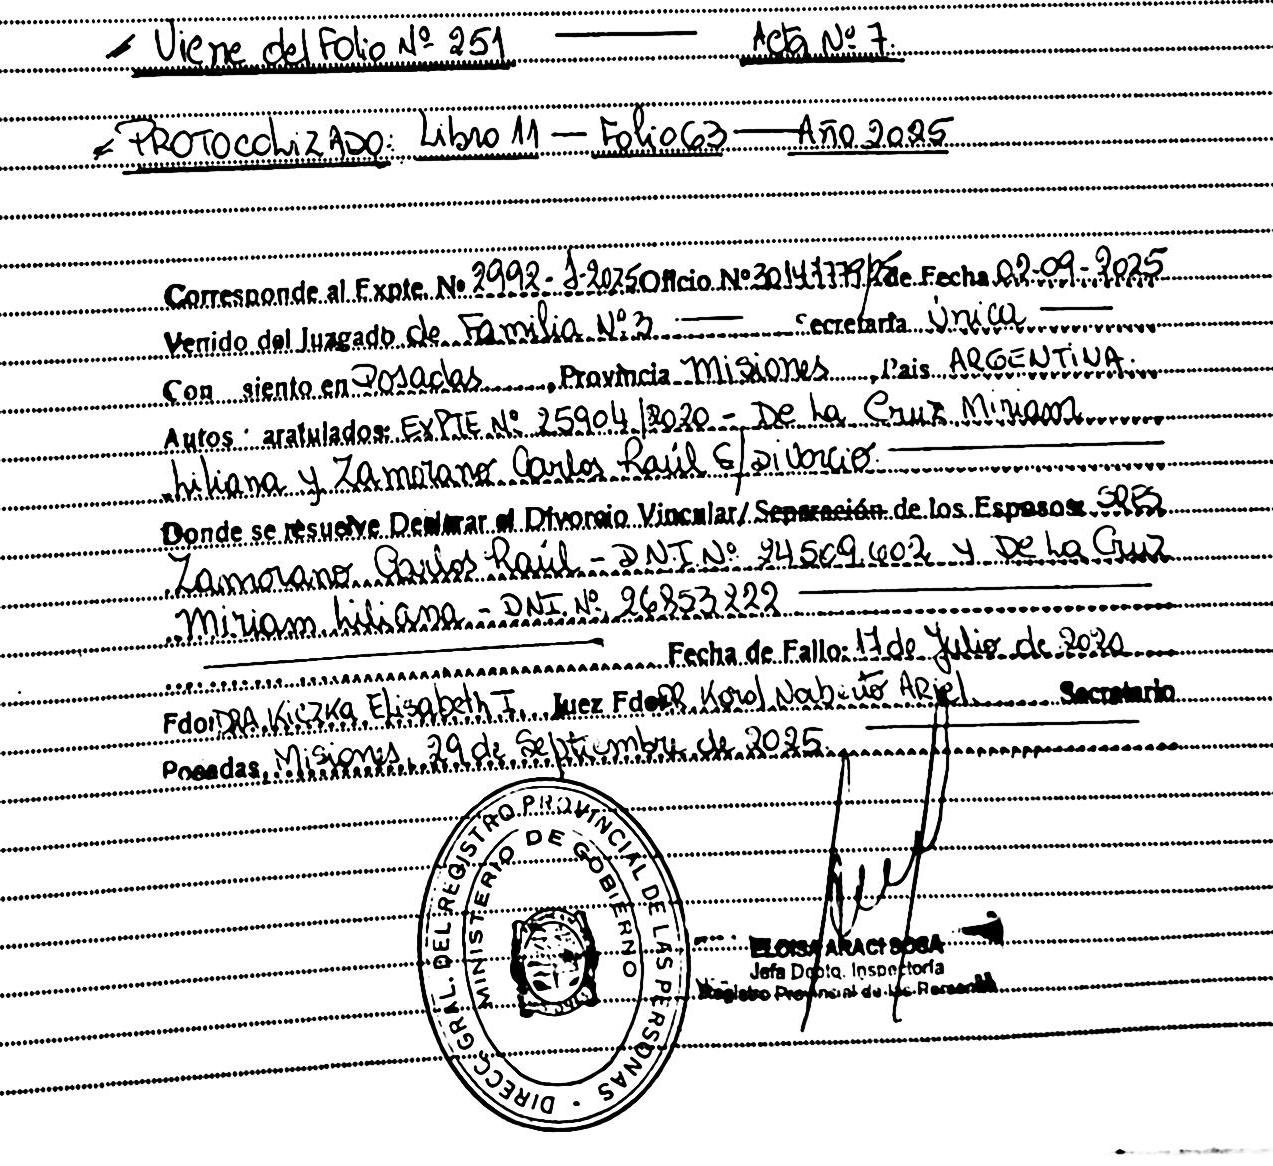 Viene del Folio Nº 251 —— Acta Nº 7.
PROTOCOLIZADO: Libro 11 — Folio 63 — Año 2025
Corresponde al Expte. Nº 2992-J-2025 Oficio Nº 30141779/25 de Fecha 02-09-2025
Venido del Juzgado de Familia Nº 3 —— Secretaría Única ——
Con siento en Posadas, Provincia Misiones, Pais ARGENTINA.
Autos aratulados: EXPTE Nº 25904/2020 - De La Cruz Miriam
Liliana y Zamorano Carlos Raúl S/Divorcio. ——
Donde se resuelve Declarar el Divorcio Vincular/ Separación de los Esposos: SRES
Zamorano Carlos Raúl - DNI. Nº 24509.602 y De La Cruz
Miriam Liliana - DNI. Nº 26853222 ——
—— Fecha de Fallo: 17 de Julio de 2020
Fdo: DRA. Kiczka Elisabeth I. Juez Fdo: DR Korol Ariel. Secretario
Posadas, Misiones, 29 de Septiembre de 2025. ——
DIRECC. GRAL. DEL REGISTRO PROVINCIAL DE LAS PERSONAS
MINISTERIO DE GOBIERNO
ELOISA ARACI SOSA
Jefa Dpto. Inspectoría
Registro Provincial de las Personas